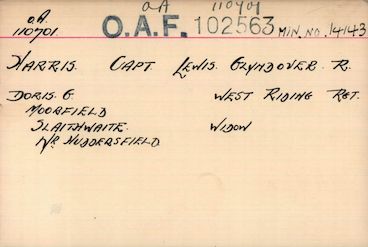 OA 110701
OA 110701
O.A.F. 102563 MIN. NO. 14143
HARRIS. CAPT LEWIS. GLYNDOVER. R.
DORIS. G. WEST RIDING RGT.
MOORFIELD
SLAITHWAITE. WIDOW
NR HUDDERSFIELD